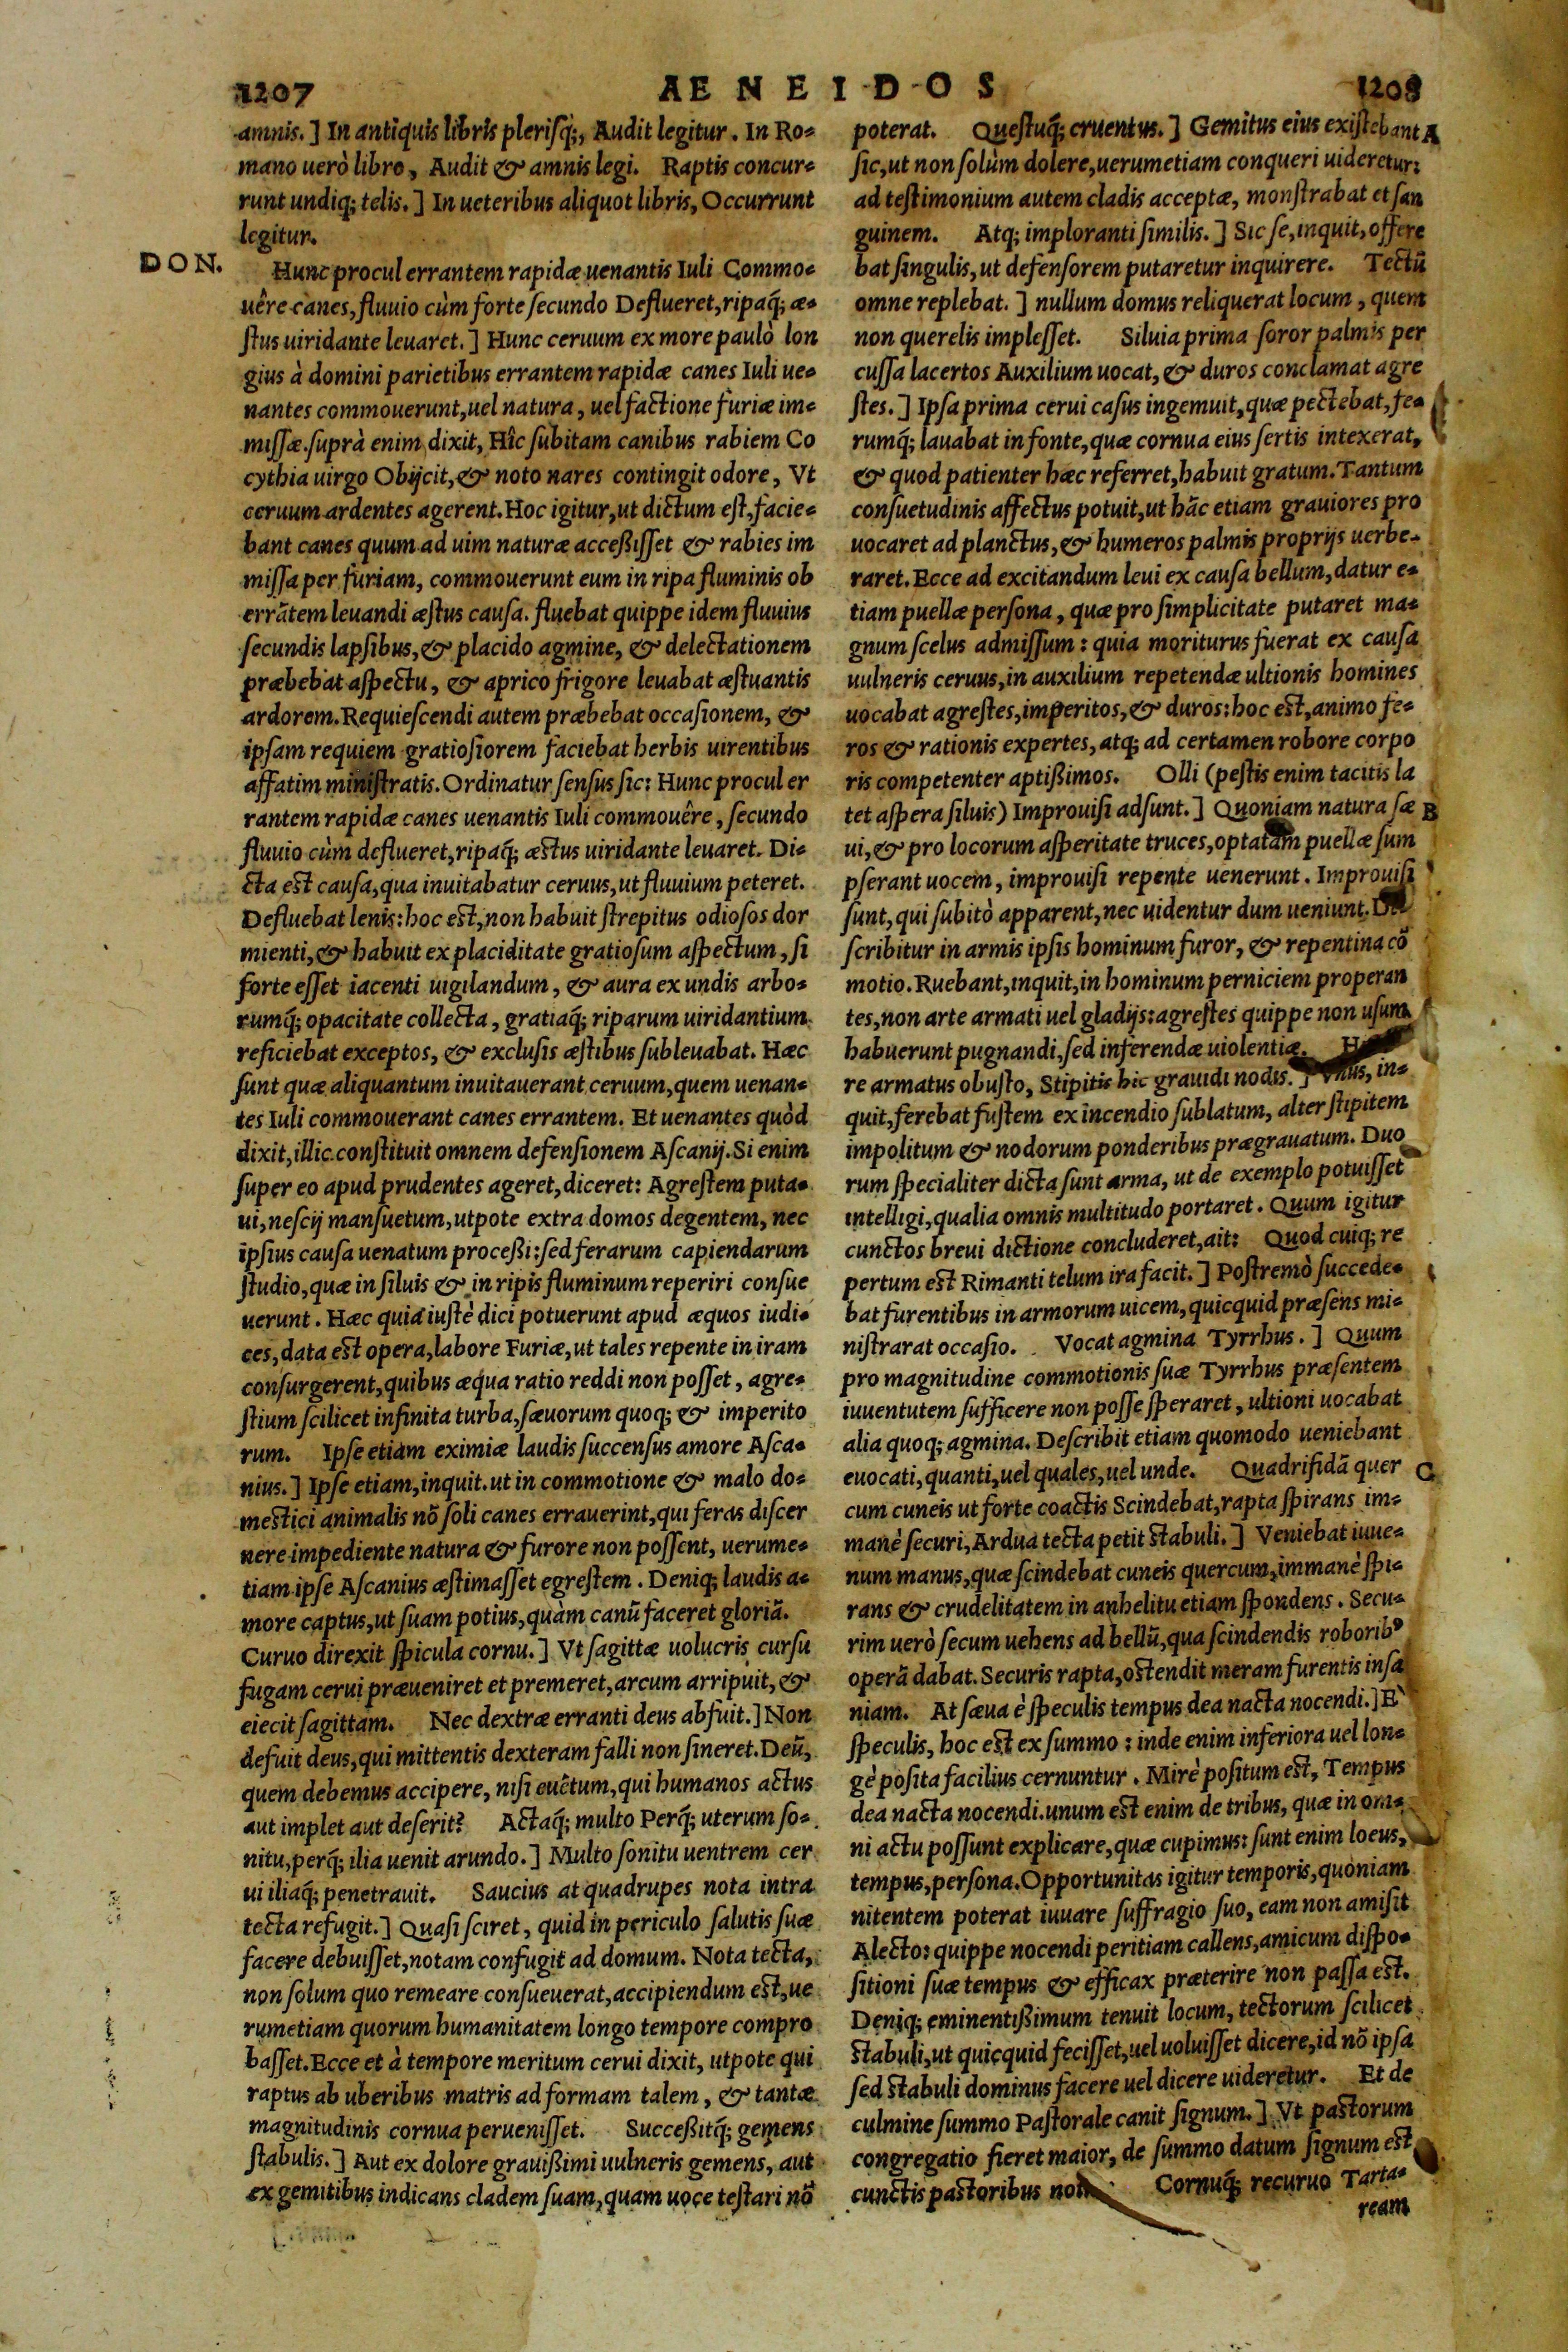 1207
AENEIDOS
1208
amnis.] In antiquis libris pleriſq́;, Audit legitur. In Ro-
mano uerò libro, Audit & amnis legi. Raptis concur-
runt undiq; telis.] In ueteribus aliquot libris, Occurrunt
legitur.
DON.
Hunc procul errantem rapidæ uenantis Iuli Commo-
uêre canes, fluuio cùm forte ſecundo Deflueret, ripaq́; æ-
ſtus uiridante leuaret.] Hunc ceruum ex more paulò lon
gius à domini parietibus errantem rapidæ canes Iuli ue-
nantes commouerunt, uel natura, uel factione furiæ im-
miſſæ. ſuprà enim dixit, Hîc ſubitam canibus rabiem Co
cythia uirgo Obijcit, & noto nares contingit odore, Vt
ceruum ardentes agerent. Hoc igitur, ut dictum eſt, facie-
bant canes quum ad uim naturæ acceßiſſet & rabies im
miſſa per furiam, commouerunt eum in ripa fluminis ob
errātem leuandi æſtus cauſa. fluebat quippe idem fluuius
ſecundis lapſibus, & placido agmine, & delectationem
præbebat aſpectu, & aprico frigore leuabat æſtuantis
ardorem. Requieſcendi autem præbebat occaſionem, &
ipſam requiem gratioſiorem faciebat herbis uirentibus
affatim miniſtratis. Ordinatur ſenſus ſic: Hunc procul er
rantem rapidæ canes uenantis Iuli commouêre, ſecundo
fluuio cùm deflueret, ripaq́; æſtus uiridante leuaret. Di-
cta eſt cauſa, qua inuitabatur ceruus, ut fluuium peteret.
Defluebat lenis: hoc eſt, non habuit ſtrepitus odioſos dor
mienti, & habuit ex placiditate gratioſum aſpectum, ſi
forte eſſet iacenti uigilandum, & aura ex undis arbo-
rumq́; opacitate collecta, gratiaq́; riparum uiridantium
reficiebat exceptos, & excluſis æſtibus ſubleuabat. Hæc
ſunt quæ aliquantum inuitauerant ceruum, quem uenan-
tes Iuli commouerant canes errantem. Et uenantes quòd
dixit, illic conſtituit omnem defenſionem Aſcanij. Si enim
ſuper eo apud prudentes ageret, diceret: Agreſtem puta-
ui, neſcij manſuetum, utpote extra domos degentem, nec
ipſius cauſa uenatum proceßi: ſed ferarum capiendarum
ſtudio, quæ in ſiluis & in ripis fluminum reperiri conſue
uerunt. Hæc quia iuſtè dici potuerunt apud æquos iudi-
ces, data eſt opera, labore Furiæ, ut tales repente in iram
conſurgerent, quibus æqua ratio reddi non poſſet, agre-
ſtium ſcilicet infinita turba, ſæuorum quoq; & imperito
rum. Ipſe etiam eximiæ laudis ſuccenſus amore Aſca-
nius.] Ipſe etiam, inquit. ut in commotione & malo do-
meſtici animalis nō ſoli canes errauerint, qui feras diſcer
nere impediente natura & furore non poſſent, uerume-
tiam ipſe Aſcanius æſtimaſſet egreſtem. Deniq; laudis a-
more captus, ut ſuam potius, quàm canū faceret gloriā.
Curuo direxit ſpicula cornu.] Vt ſagittæ uolucris curſu
fugam cerui præueniret et premeret, arcum arripuit, &
eiecit ſagittam. Nec dextræ erranti deus abfuit.] Non
defuit deus, qui mittentis dexteram falli non ſineret. Deū,
quem debemus accipere, niſi euētum, qui humanos actus
aut implet aut deſerit? Actaq́; multo Perq́; uterum ſo-
nitu, perq́; ilia uenit arundo.] Multo ſonitu uentrem cer
ui iliaq́; penetrauit. Saucius at quadrupes nota intra
tecta refugit.] Quaſi ſciret, quid in periculo ſalutis ſuæ
facere debuiſſet, notam confugit ad domum. Nota tecta,
non ſolum quo remeare conſueuerat, accipiendum eſt, ue
rumetiam quorum humanitatem longo tempore compro
baſſet. Ecce et à tempore meritum cerui dixit, utpote qui
raptus ab uberibus matris ad formam talem, & tantæ
magnitudinis cornua perueniſſet. Succeßitq́; gemens
ſtabulis.] Aut ex dolore grauißimi uulneris gemens, aut
ex gemitibus indicans cladem ſuam, quam uoce teſtari nō
poterat. Queſtuq́; cruentus.] Gemitus eius exiſtebant A
ſic, ut non ſolùm dolere, uerumetiam conqueri uideretur:
ad teſtimonium autem cladis acceptæ, monſtrabat et ſan
guinem. Atq; imploranti ſimilis.] Sic ſe, inquit, offere
bat ſingulis, ut defenſorem putaretur inquirere. Tectū
omne replebat.] nullum domus reliquerat locum, quem
non querelis impleſſet. Siluia prima ſoror palmis per
cuſſa lacertos Auxilium uocat, & duros conclamat agre
ſtes.] Ipſa prima cerui caſus ingemuit, quæ pectebat, fe-
rumq́; lauabat in fonte, quæ cornua eius ſertis intexerat,
& quod patienter hæc referret, habuit gratum. Tantum
conſuetudinis affectus potuit, ut hāc etiam grauiores pro
uocaret ad planctus, & humeros palmis proprijs uerbe-
raret. Ecce ad excitandum leui ex cauſa bellum, datur e-
tiam puellæ perſona, quæ pro ſimplicitate putaret ma-
gnum ſcelus admiſſum: quia moriturus fuerat ex cauſa
uulneris ceruus, in auxilium repetendæ ultionis homines
uocabat agreſtes, imperitos, & duros: hoc eſt, animo fe-
ros & rationis expertes, atq; ad certamen robore corpo
ris competenter aptißimos. Olli (peſtis enim tacitis la
tet aſpera ſiluis) Improuiſi adſunt.] Quoniam natura ſæ B
ui, & pro locorum aſperitate truces, optatam puellæ ſum
pſerant uocem, improuiſi repente uenerunt. Improuiſi
ſunt, qui ſubitò apparent, nec uidentur dum ueniunt.
ſcribitur in armis ipſis hominum furor, & repentina cō
motio. Ruebant, inquit, in hominum perniciem properan
tes, non arte armati uel gladijs: agreſtes quippe non uſum
habuerunt pugnandi, ſed inferendæ uiolentiæ.
re armatus obuſto, Stipitis hic grauidi nodis.] Vnus, in-
quit, ferebat fuſtem ex incendio ſublatum, alter ſtipitem
impolitum & nodorum ponderibus prægrauatum. Duo
rum ſpecialiter dicta ſunt arma, ut de exemplo potuiſſet
intelligi, qualia omnis multitudo portaret. Quum igitur
cunctos breui dictione concluderet, ait: Quod cuiq; re
pertum eſt Rimanti telum ira facit.] Poſtremò ſuccede-
bat furentibus in armorum uicem, quicquid præſens mi-
niſtrarat occaſio. Vocat agmina Tyrrhus.] Quum
pro magnitudine commotionis ſuæ Tyrrhus præſentem
iuuentutem ſufficere non poſſe ſperaret, ultioni uocabat
alia quoq; agmina. Deſcribit etiam quomodo ueniebant
euocati, quanti, uel quales, uel unde. Quadrifidā quer C
cum cuneis ut forte coactis Scindebat, rapta ſpirans im-
manè ſecuri, Ardua tecta petit ſtabuli.] Veniebat iuue-
num manus, quæ ſcindebat cuneis quercum, immanè ſpi-
rans & crudelitatem in anhelitu etiam ſpondens. Secu-
rim uerò ſecum uehens ad bellū, qua ſcindendis roborib⁹
operā dabat. Securis rapta, oſtendit meram furentis inſa
niam. At ſæua è ſpeculis tempus dea nacta nocendi.] E`
ſpeculis, hoc eſt ex ſummo: inde enim inferiora uel lon-
gè poſita facilius cernuntur. Mirè poſitum eſt, Tempus
dea nacta nocendi. unum eſt enim de tribus, quæ in om-
ni actu poſſunt explicare, quæ cupimus: ſunt enim locus,
tempus, perſona. Opportunitas igitur temporis, quoniam
nitentem poterat iuuare ſuffragio ſuo, eam non amiſit
Alecto: quippe nocendi peritiam callens, amicum diſpo-
ſitioni ſuæ tempus & efficax præterire non paſſa eſt.
Deniq; eminentißimum tenuit locum, tectorum ſcilicet
ſtabuli, ut quicquid feciſſet, uel uoluiſſet dicere, id nō ipſa
ſed ſtabuli dominus facere uel dicere uideretur. Et de
culmine ſummo Paſtorale canit ſignum.] Vt paſtorum
congregatio fieret maior, de ſummo datum ſignum eſt
cunctis paſtoribus Cornuq́; recuruo Tarta-
ream